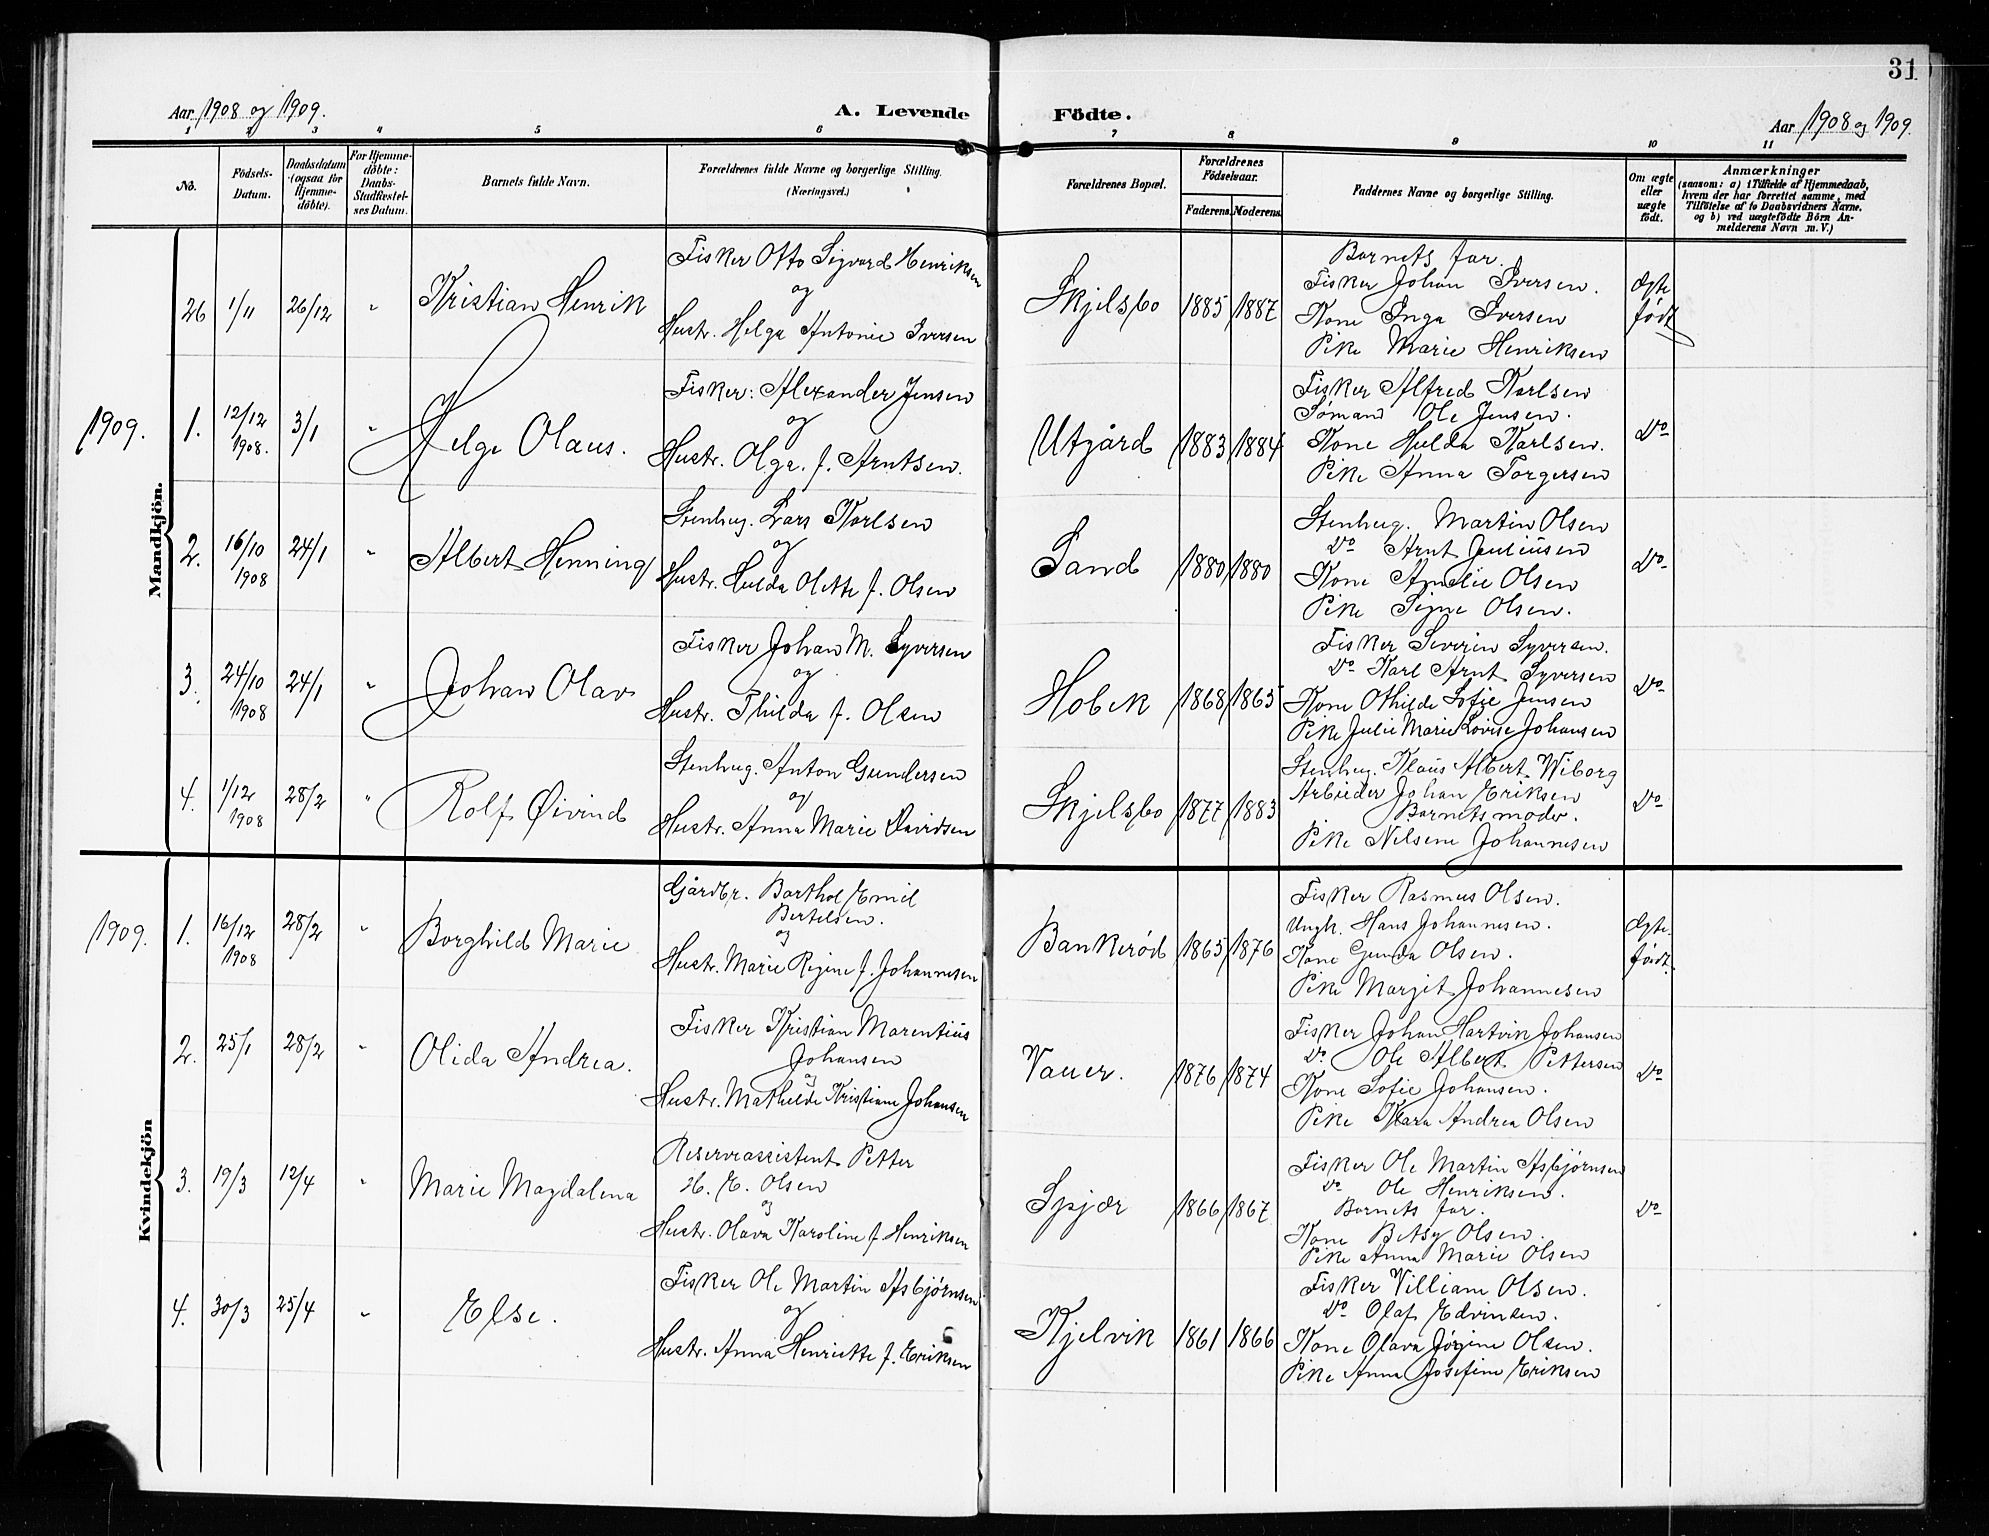 31
Aar 1908 og 1909.
A. Levende Födte.
Aar 1908 og 1909.
1 2 3 4 5 6 7 8 9 10 11
No.
Födsels-
Datum.
Daabsdatum
(ogsaa for
Hjemme-
döbte).
For Hjemme-
döbte:
Daabs-
Stadfestel-
ses Datum.
Barnets fulde Navn.
Forældrenes fulde Navne og borgerlige Stilling.
(Næringsvei.)
Forældrenes Bopæl.
Forældrenes
Födselsaar.
Faderens. Moderens.
Faddernes Navne og borgerlige Stilling.
Om ægte
eller
uægte
födt.
Anmærkninger
(saasom: a) i Tilfælde af Hjemmedaab,
hvem der har forrettet samme, med
Tilföielse af to Daabsvidners Navne.
og b) ved uægtefödte Börn An-
melderens Navn m. V.)
Mandkjön.
26 1/11 26/12 " Kristian Henrik
Fisker Otto Sigvard Henriksen
og
Hustr. Helga Antonie Iversen
Skjelsbo 1885 1887
Barnets far.
Fisker Johan Iversen.
Kone Inga Iversen
Pike Marie Henriksen
Ægte
født
1909.
1. 12/12 1908. 3/1 " Helge Olaus.
Fisker: Alexander Jensen
og
Hustr. Olga. f. Arntsen.
Utgård 1883 1884
Fisker Alfred Karlsen
Sømand Ole Jensen.
Kone Hulda Karlsen.
Pike Anna Torgersen
Do
2. 16/10 1908 24/1 " Albert Henning
Stenhug. Lars Karlsen
og
Hustr. Hulda Olette f. Olsen
Sand 1880 1880
Stenhug. Martin Olsen
Do Arnt Juliusen
Kone Amelie Olsen
Pike Signe Olsen.
Do
3. 24/10 1908 24/1 " Johan Olav
Fisker Johan M. Syversen
og
Hustr. Thilda f. Olsen
Hobek 1868 1865
Fisker Severin Syversen.
Do Karl Arnt Syversen
Kone Othilde Sofie Jensen
Pike Julie Marie Lovise Johansen
Do
4. 1/12 1908 28/2 " Rolf Øivind
Stenhug. Anton Gundersen
og
Hustr. Anna Marie Davidsen
Skjelsbo 1877 1883
Stenhug. Klaus Albert Wiborg
Arbeider Johan Eriksen
Barnets moder.
Pike Nilsene Johannesen
Do
Kvindekjön
1909.
1. 16/12 1908 28/2 " Borghild Marie
Gårdbr. Barthol Emil
Bertelsen.
og
Hustr. Marie Regine f. Johannesen
Bankerød 1865 1876
Fisker Rasmus Olsen.
Ungk. Hans Johannesen.
Kone Gunda Olsen.
Pike Margit Johannesen
Ægte
født.
2. 25/1 28/2 " Olida Andrea.
Fisker Kristian Marentius
Johansen
og
Hustr. Mathilde Kristiane Johansen
Vauer. 1876 1874
Fisker Johan Hartvik Johansen
Do Ole Albert Pettersen
Kone Sofie Johansen.
Pike Klara Andrea Olsen
Do
3. 19/3 12/4 " Marie Magdalena
Reserveassistent Petter
H. E. Olsen
og
Hustr. Olava Karoline f. Henriksen
Spjær 1866 1867
Fisker Ole Martin Asbjørnsen
Do Ole Henriksen.
Barnets far.
Kone Betsy Olsen.
Pike Anna Marie Olsen
Do
4. 30/3 25/4 " Else.
Fisker Ole Martin Asbjørnsen
og
Hustr. Anna Henriette f. Eriksen
Kjelvik 1861 1866
Fisker Villiam Olsen.
Do Olaf Edvinsen.
Kone Olava Jørgine Olsen.
Pike Anna Josefine Eriksen